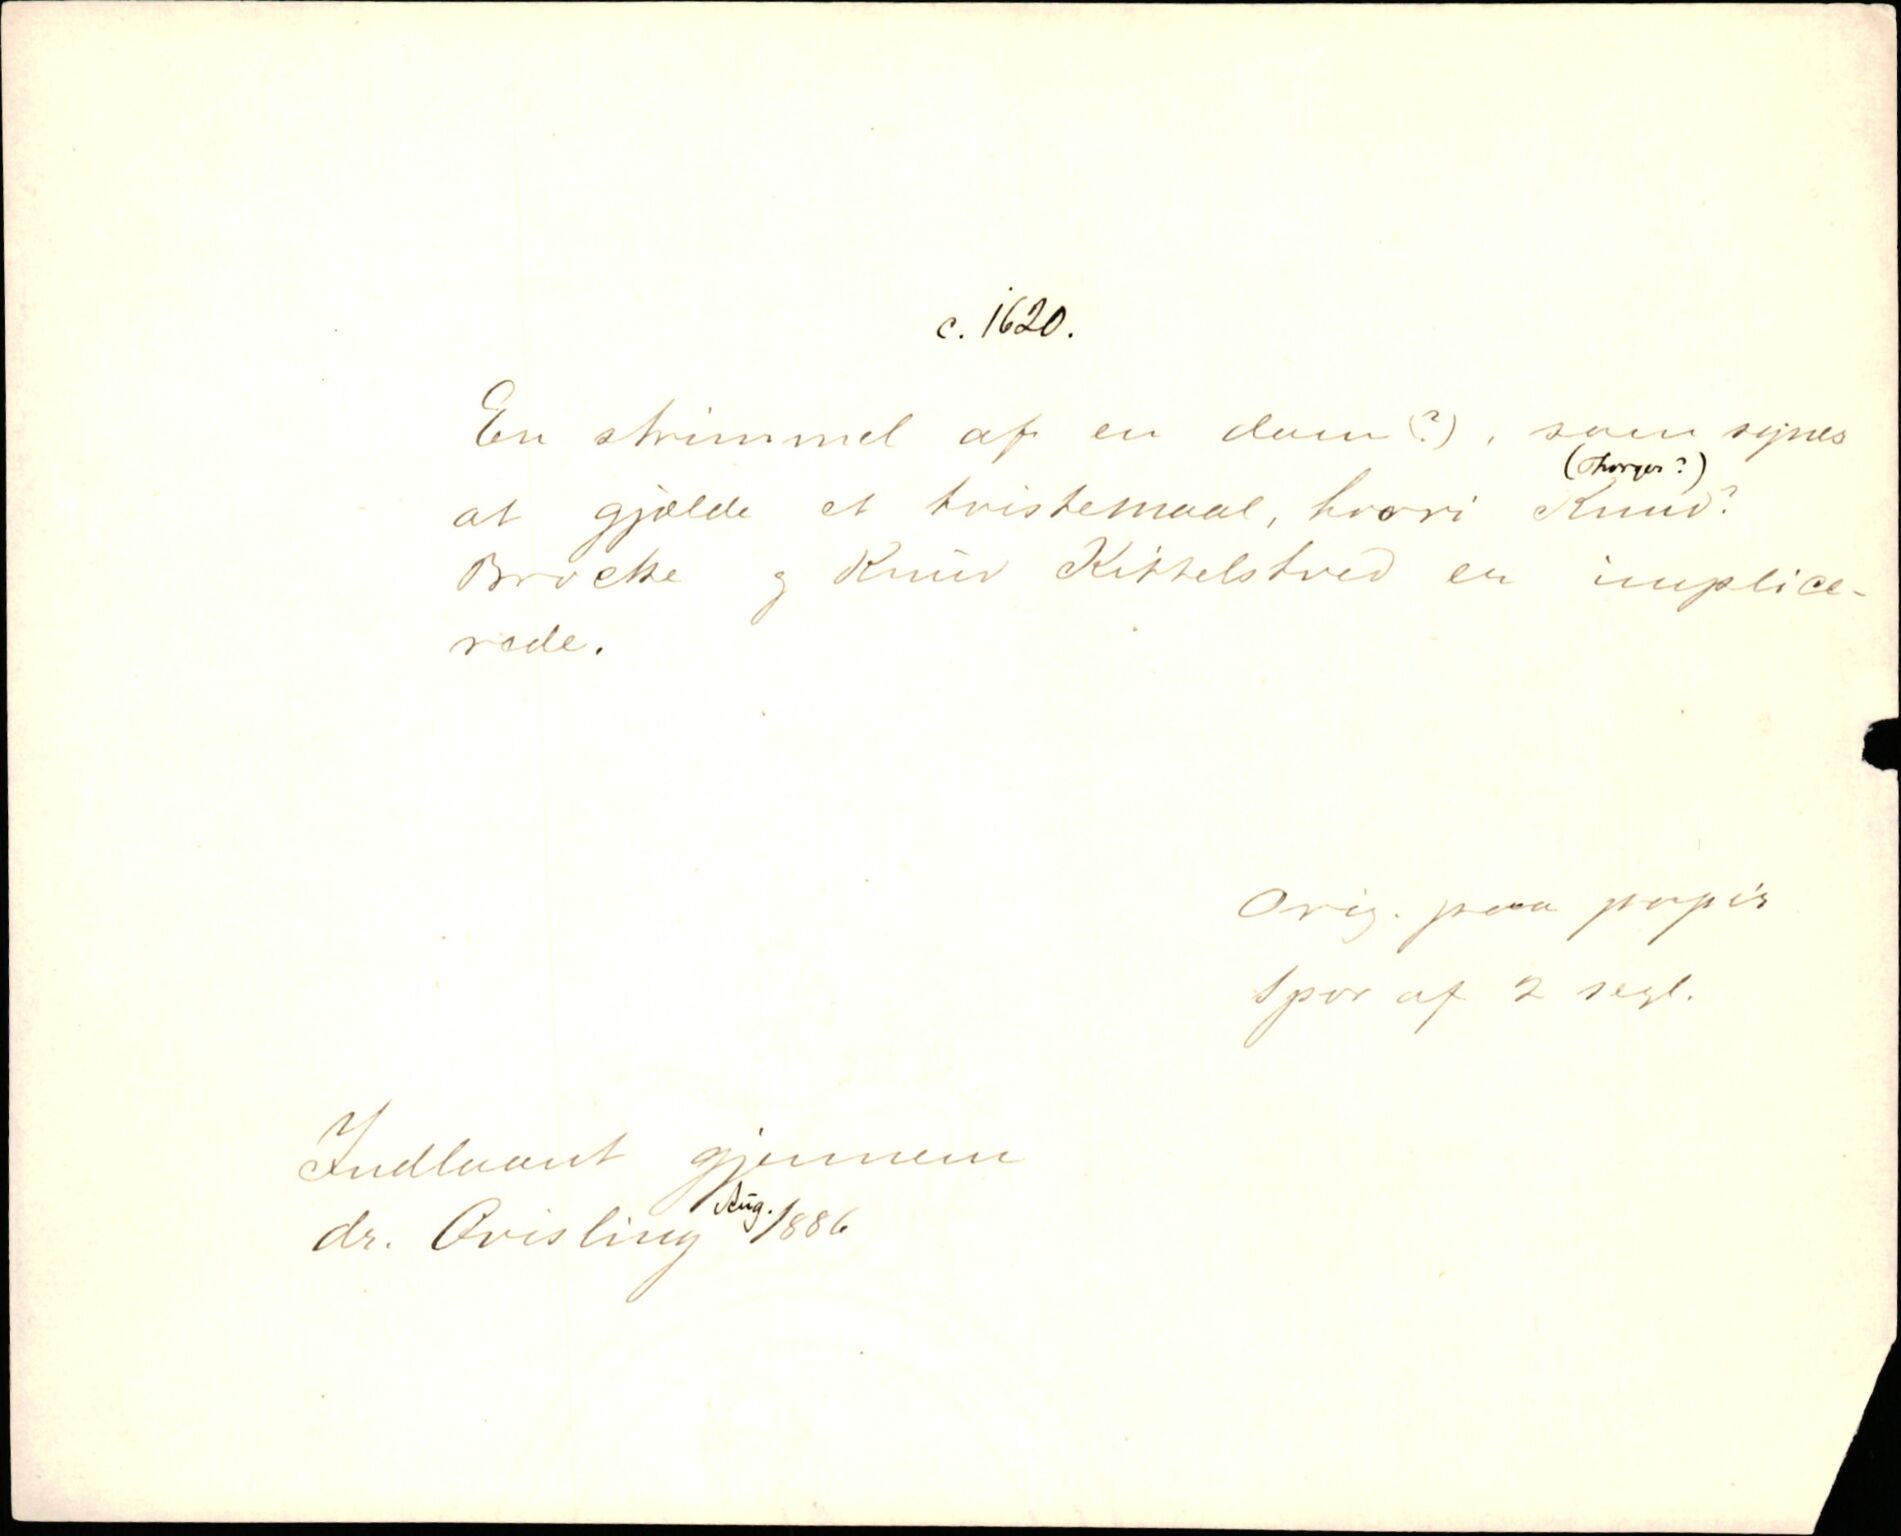 c. 1620.
En strimmel af en dom (?), som synes
(Thorger?)
at gjælde et tvistemaal, hvori Knud?
Brocke og Knud Kittelstved er implice-
rede.
Orig. paa papir
Spor af 2 segl.
Indlaant gjennem
dr. Qvisling Aug. 1886